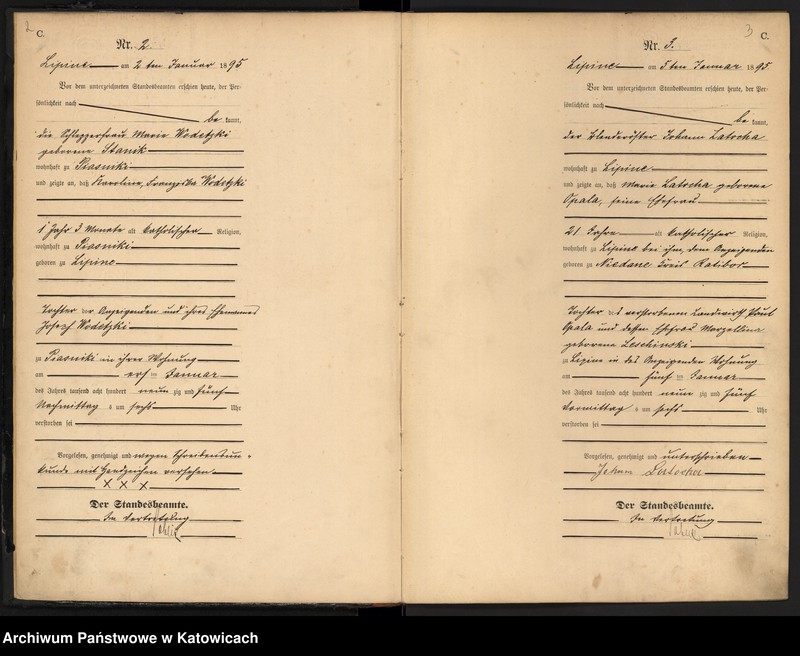 2
C.
Nr. 2.
Lipine am 2ten Januar 1895
Vor dem unterzeichneten Standesbeamten erschien heute, der Per-
sönlichkeit nach
be kannt,
die Schlepperfrau Marie Wodetzki
geborene Stanik
wohnhaft zu Piasniki
und zeigte an, daß Karoline, Franziska Wodetzki
1 Jahr 3 Monate alt katholischer Religion,
wohnhaft zu Piasniki
geboren zu Lipine
Tochter der Anzeigenden und ihres Ehemannes
Josef Wodetzki
zu Piasniki in ihrer Wohnung
am ersten Januar
des Jahres tausend acht hundert neun zig und fünf
Nachmittag s um sechs Uhr
verstorben sei
Vorgelesen, genehmigt und wegen Schreibensun-
kunde mit Handzeichen versehen
X X X
Der Standesbeamte.
In Vertretung
3
C.
Nr. 3.
Lipine am 5ten Januar 1895
Vor dem unterzeichneten Standesbeamten erschien heute, der Per-
sönlichkeit nach
be kannt,
der Blenderöster Johann Latocha
wohnhaft zu Lipine
und zeigte an, daß Marie Latocha geborene
Opala, seine Ehefrau
21 Jahre alt katholischer Religion,
wohnhaft zu Lipine bei ihm, dem Anzeigenden
geboren zu Niedane Kreis Ratibor
Tochter des verstorbenen Landwirth Paul
Opala und dessen Ehefrau Marzelline
geborene Leschinski
zu Lipine in des Anzeigenden Wohnung
am fünften Januar
des Jahres tausend acht hundert neun zig und fünf
Vormittag s um sechs Uhr
verstorben sei
Vorgelesen, genehmigt und unterschrieben
Johann
Der Standesbeamte.
In Vertretung
Archiwum Państwowe w Katowicach